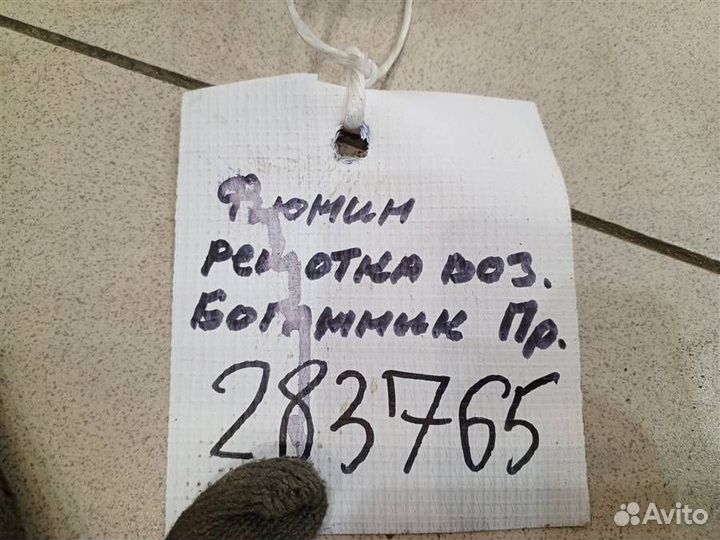 Фиомин
решотка воз.
Богажник Пр.
283765
Avito